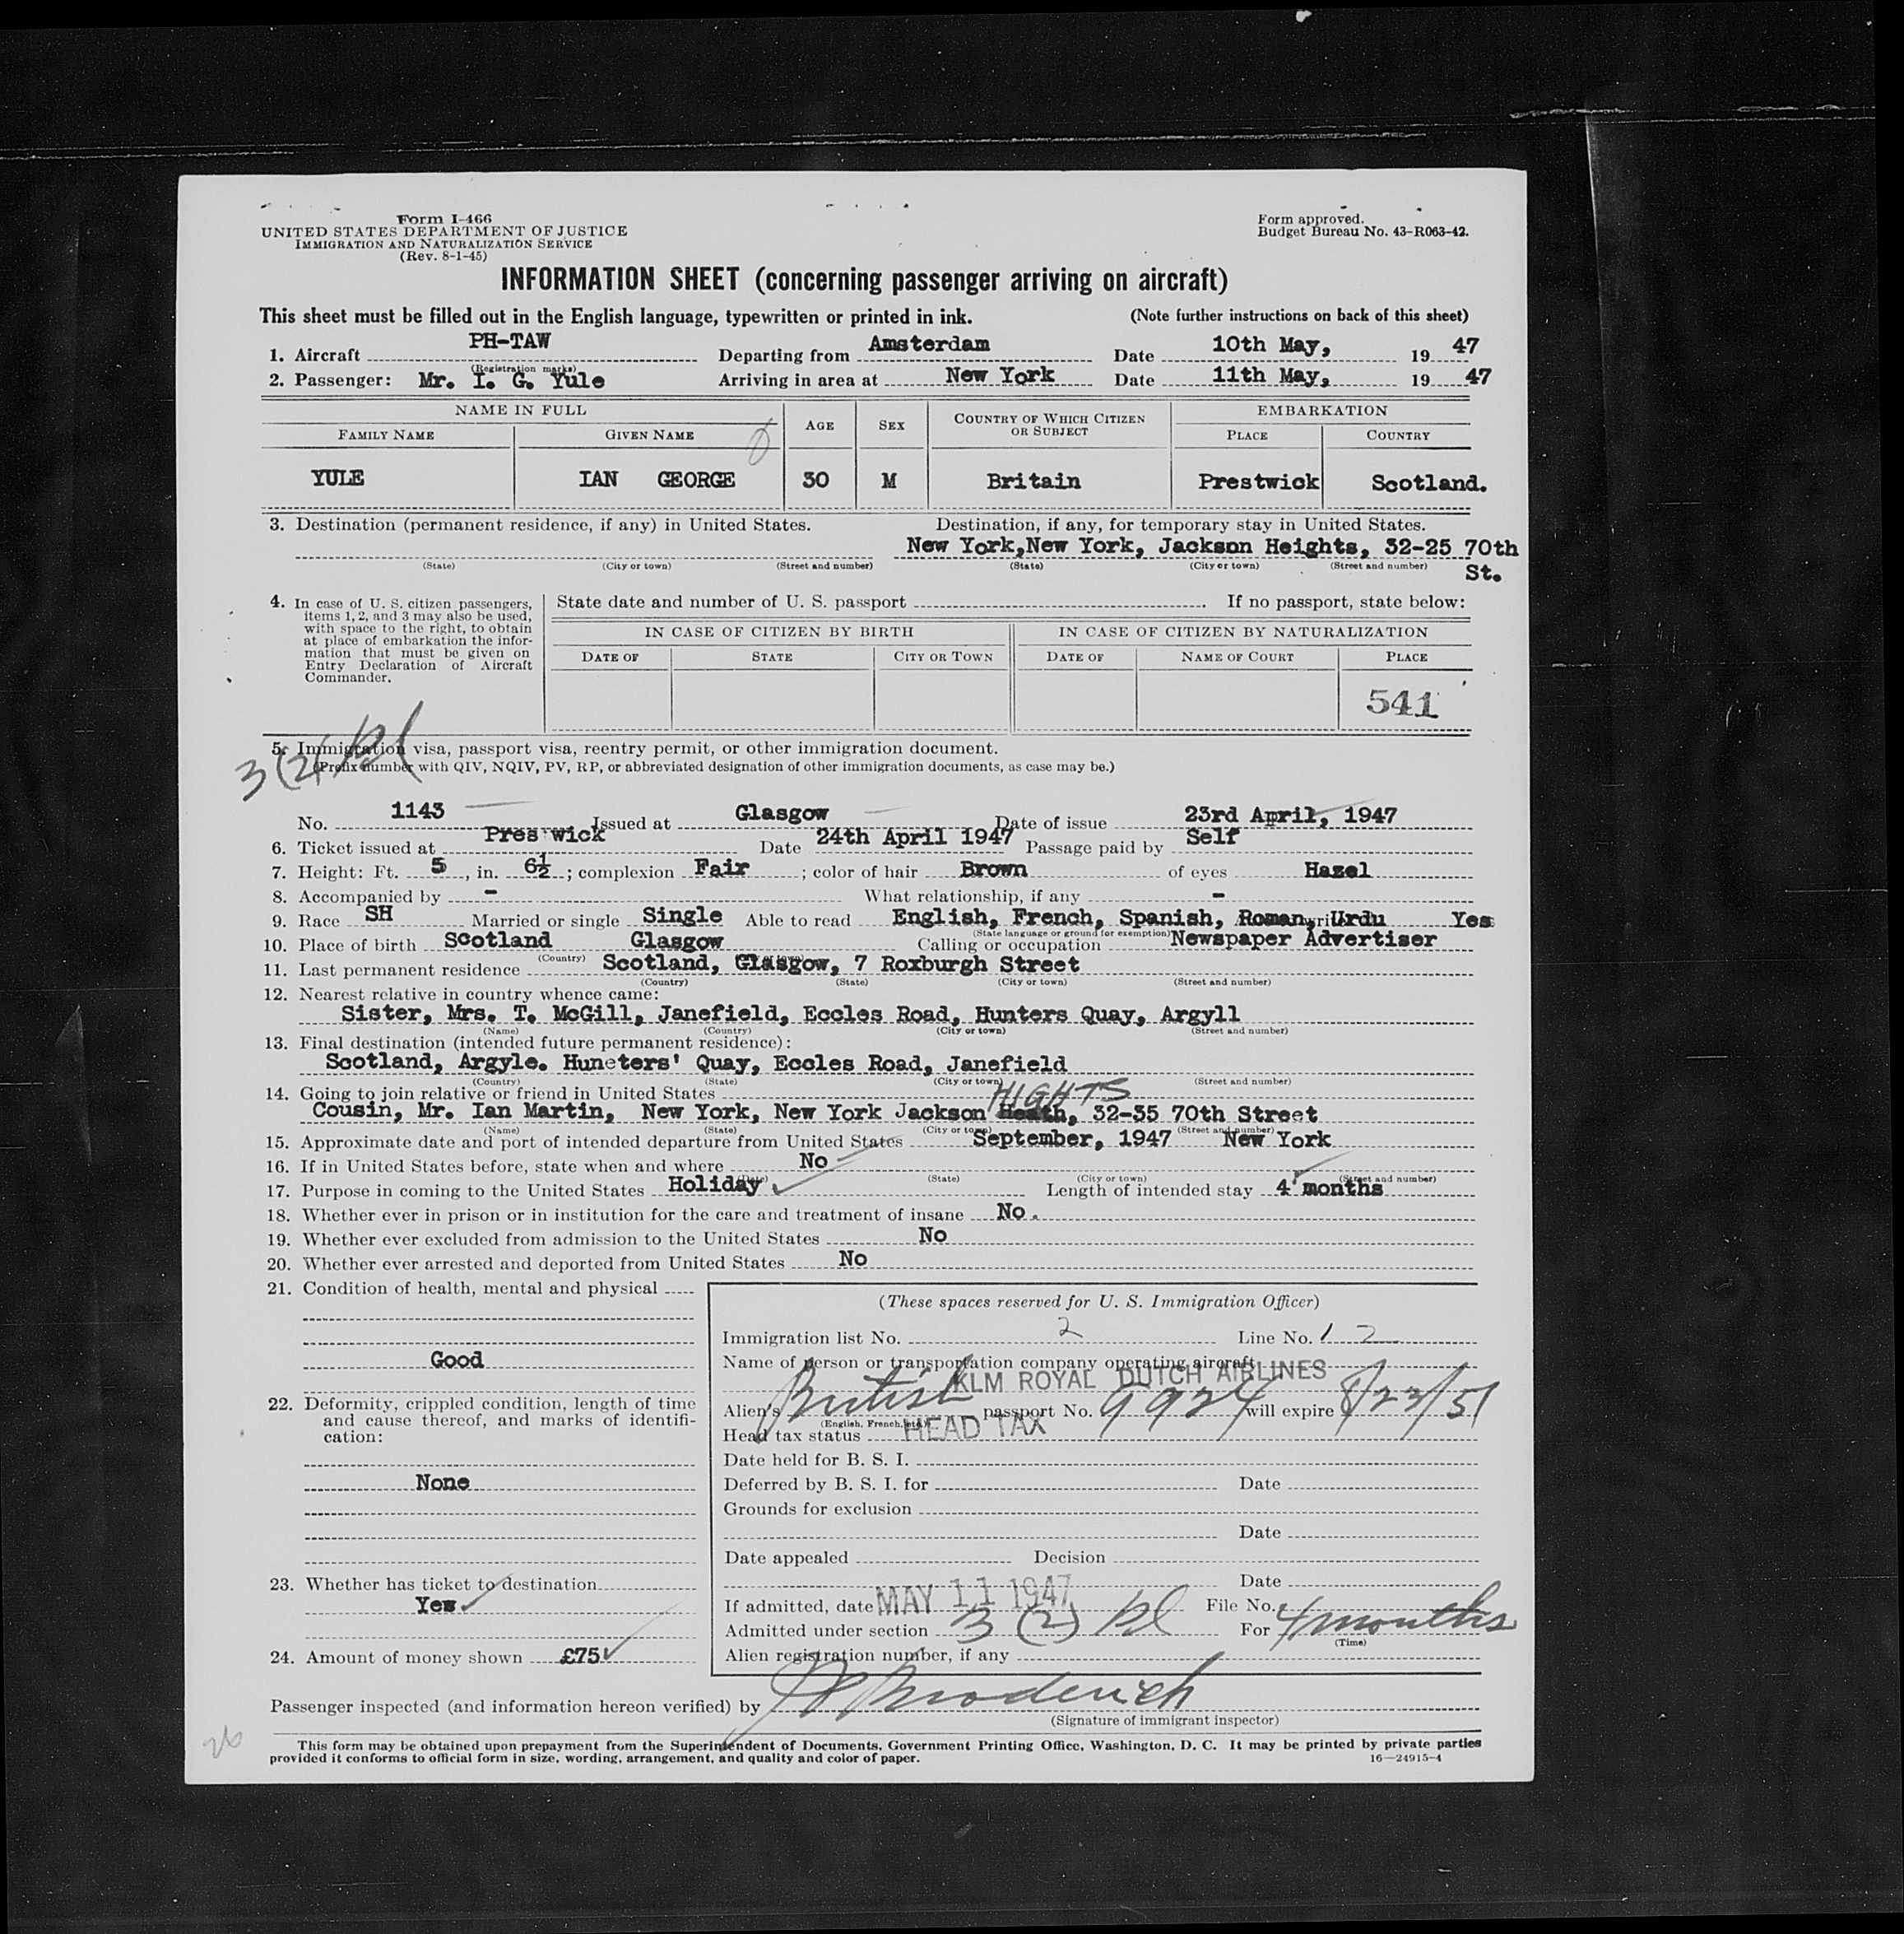 Form I-466
UNITED STATES DEPARTMENT OF JUSTICE
IMMIGRATION AND NATURALIZATION SERVICE
(Rev. 8-1-45)
Form approved.
Budget Bureau No. 43-R063-42.
INFORMATION SHEET (concerning passenger arriving on aircraft)
This sheet must be filled out in the English language, typewritten or printed in ink. (Note further instructions on back of this sheet)
1. Aircraft PH-TAW Departing from Amsterdam Date 10th May, 19 47
(Registration marks)
2. Passenger: Mr. I. G. Yule Arriving in area at New York Date 11th May, 19 47
NAME IN FULL AGE SEX COUNTRY OF WHICH CITIZEN OR SUBJECT EMBARKATION
FAMILY NAME GIVEN NAME PLACE COUNTRY
YULE IAN GEORGE 30 M Britain Prestwick Scotland.
3. Destination (permanent residence, if any) in United States. Destination, if any, for temporary stay in United States.
New York,New York, Jackson Heights, 32-25 70th
St.
(State) (City or town) (Street and number) (State) (City or town) (Street and number)
4. In case of U. S. citizen passengers,
items 1, 2, and 3 may also be used,
with space to the right, to obtain
at place of embarkation the infor-
mation that must be given on
Entry Declaration of Aircraft
Commander.
State date and number of U. S. passport . If no passport, state below:
IN CASE OF CITIZEN BY BIRTH IN CASE OF CITIZEN BY NATURALIZATION
DATE OF STATE CITY OR TOWN DATE OF NAME OF COURT PLACE
541
3(2)
5. Immigration visa, passport visa, reentry permit, or other immigration document.
(Prefix number with QIV, NQIV, PV, RP, or abbreviated designation of other immigration documents, as case may be.)
No. 1143 Issued at Glasgow Date of issue 23rd April, 1947
6. Ticket issued at Prestwick Date 24th April 1947 Passage paid by Self
7. Height: Ft. 5, in. 6½; complexion Fair; color of hair Brown of eyes Hazel
8. Accompanied by - What relationship, if any -
9. Race SH Married or single Single Able to read English, French, Spanish, Roman, Urdu Yes
(State language or ground for exemption)
10. Place of birth Scotland Glasgow Calling or occupation Newspaper Advertiser
(Country)
11. Last permanent residence Scotland, Glasgow, 7 Roxburgh Street
(Country) (State) (City or town) (Street and number)
12. Nearest relative in country whence came:
Sister, Mrs. T. McGill, Janefield, Eccles Road, Hunters Quay, Argyll
(Name) (Country) (City or town) (Street and number)
13. Final destination (intended future permanent residence):
Scotland, Argyle. Huneters' Quay, Eccles Road, Janefield
(Country) (State) (City or town) (Street and number)
14. Going to join relative or friend in United States
HIGHTS
Cousin, Mr. Ian Martin, New York, New York Jackson Heath, 32-35 70th Street
(Name) (State) (City or town) (Street and number)
15. Approximate date and port of intended departure from United States September, 1947 New York
16. If in United States before, state when and where No
(Date) (State) (City or town) (Street and number)
17. Purpose in coming to the United States Holiday Length of intended stay 4 months
18. Whether ever in prison or in institution for the care and treatment of insane No.
19. Whether ever excluded from admission to the United States No
20. Whether ever arrested and deported from United States No
21. Condition of health, mental and physical
Good
22. Deformity, crippled condition, length of time
and cause thereof, and marks of identifi-
cation:
None
23. Whether has ticket to destination
Yes
24. Amount of money shown £75
(These spaces reserved for U. S. Immigration Officer)
Immigration list No. 2 Line No. 12
Name of person or transportation company operating aircraft
KLM ROYAL DUTCH AIRLINES
Alien's British passport No. 9924 will expire 8/23/51
(English, French, etc.)
Head tax status HEAD TAX
Date held for B. S. I.
Deferred by B. S. I. for Date
Grounds for exclusion
Date
Date appealed Decision
Date
If admitted, date MAY 11 1947 File No.
Admitted under section 3 (2) For 4 months
(Time)
Alien registration number, if any
Passenger inspected (and information hereon verified) by
(Signature of immigrant inspector)
26
This form may be obtained upon prepayment from the Superintendent of Documents, Government Printing Office, Washington, D. C. It may be printed by private parties
provided it conforms to official form in size, wording, arrangement, and quality and color of paper. 16—24915-4